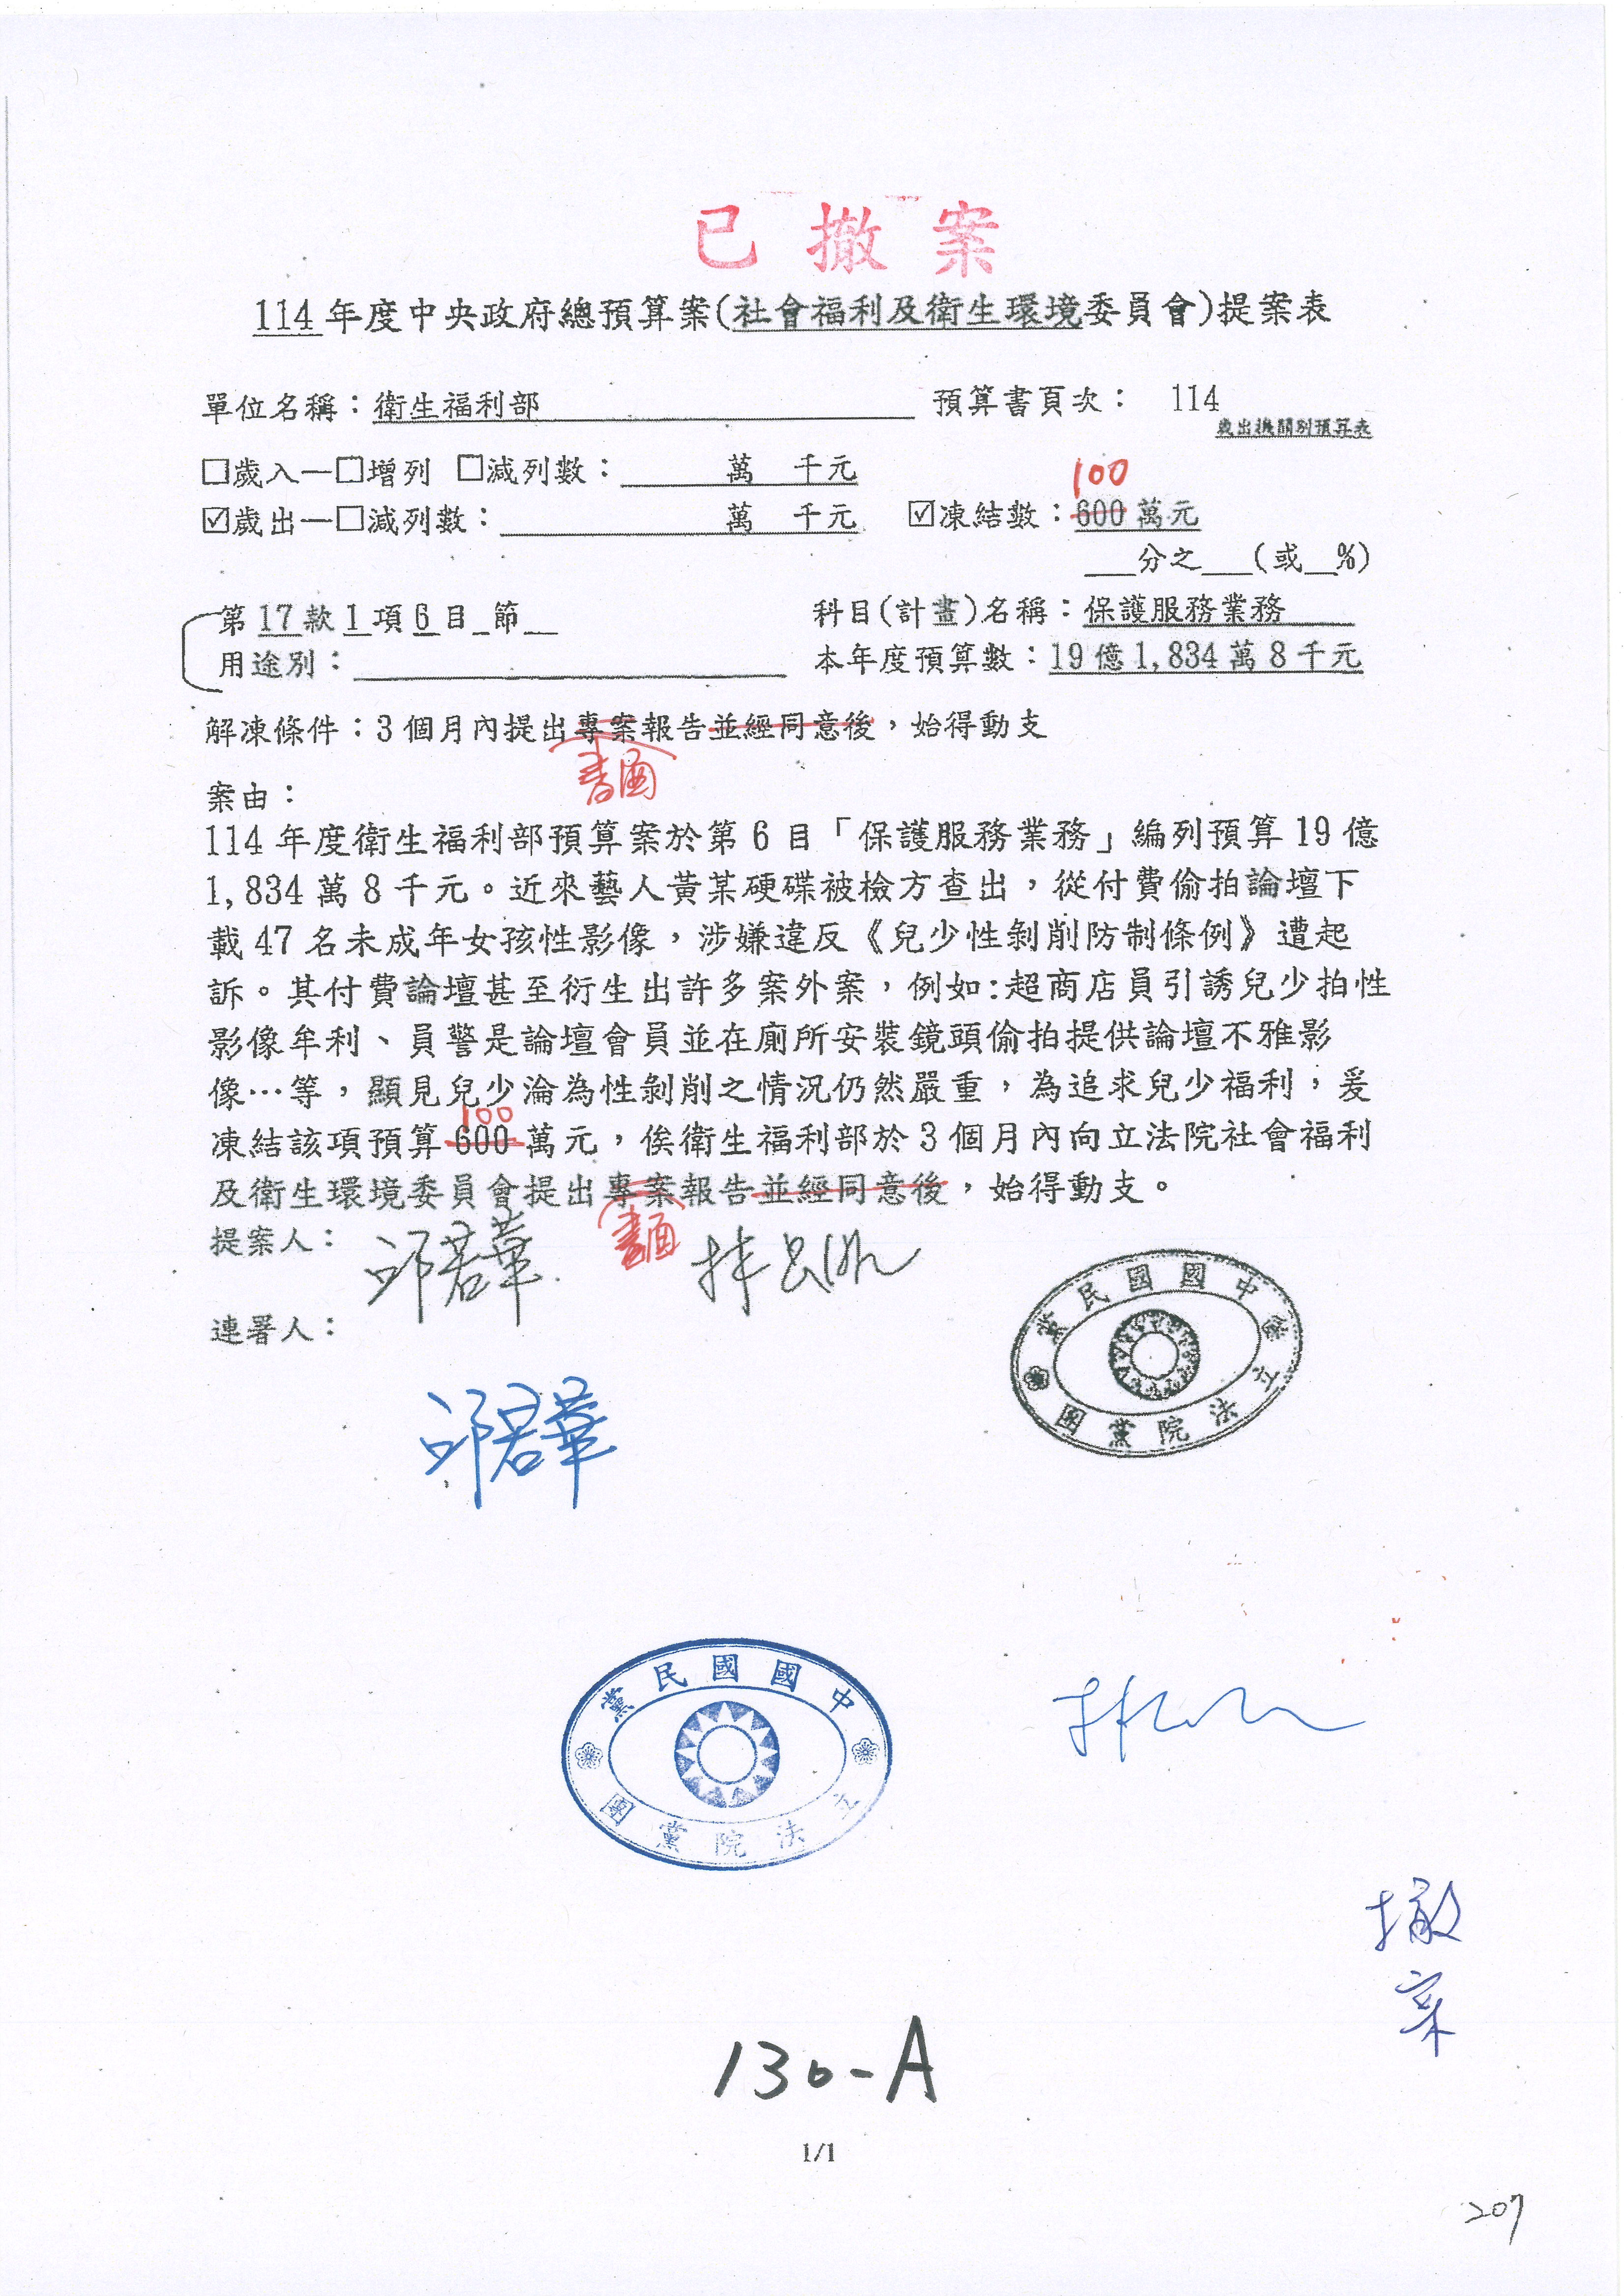 已撤案
114年度中央政府總預算案(社會福利及衛生環境委員會)提案表
單位名稱：衛生福利部 預算書頁次： 114
歲出機關別預算表
□歲入—□增列 □減列數： 萬 千元
100
☑歲出—□減列數： 萬 千元 ☑凍結數：600萬元
__分之__(或_%)
第17款1項6目_節_ 科目(計畫)名稱：保護服務業務
用途別： 本年度預算數：19億1,834萬8千元
解凍條件：3個月內提出專案報告並經同意後，始得動支
書面
案由：
114年度衛生福利部預算案於第6目「保護服務業務」編列預算19億
1,834萬8千元。近來藝人黃某硬碟被檢方查出，從付費偷拍論壇下
載47名未成年女孩性影像，涉嫌違反《兒少性剝削防制條例》遭起
訴。其付費論壇甚至衍生出許多案外案，例如:超商店員引誘兒少拍性
影像牟利、員警是論壇會員並在廁所安裝鏡頭偷拍提供論壇不雅影
像…等，顯見兒少淪為性剝削之情況仍然嚴重，為追求兒少福利，爰
100
凍結該項預算600萬元，俟衛生福利部於3個月內向立法院社會福利
及衛生環境委員會提出專案報告並經同意後，始得動支。
書面
提案人：
連署人：
中國國民黨
立法院黨團
中國國民黨
立法院黨團
撤
案
130-A
1/1
207